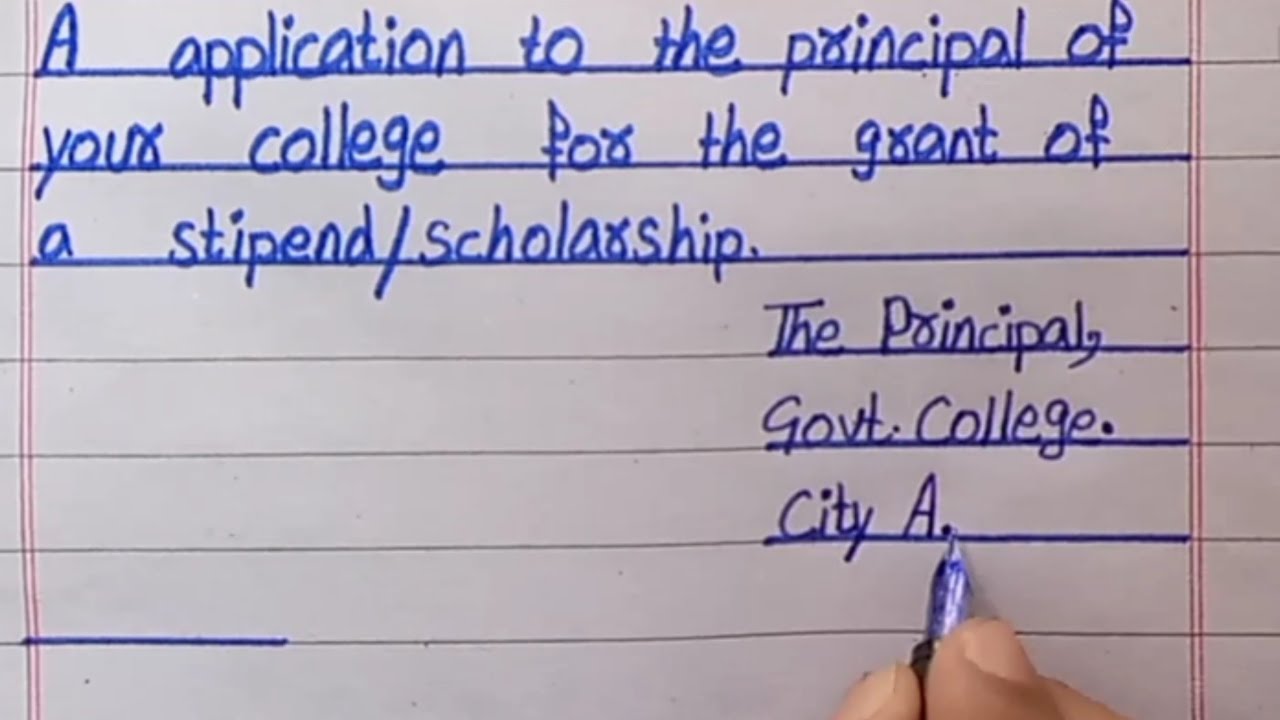 A application to the principal of
your college for the grant of
a stipend/scholarship.
The Principal,
Govt. College.
City A.